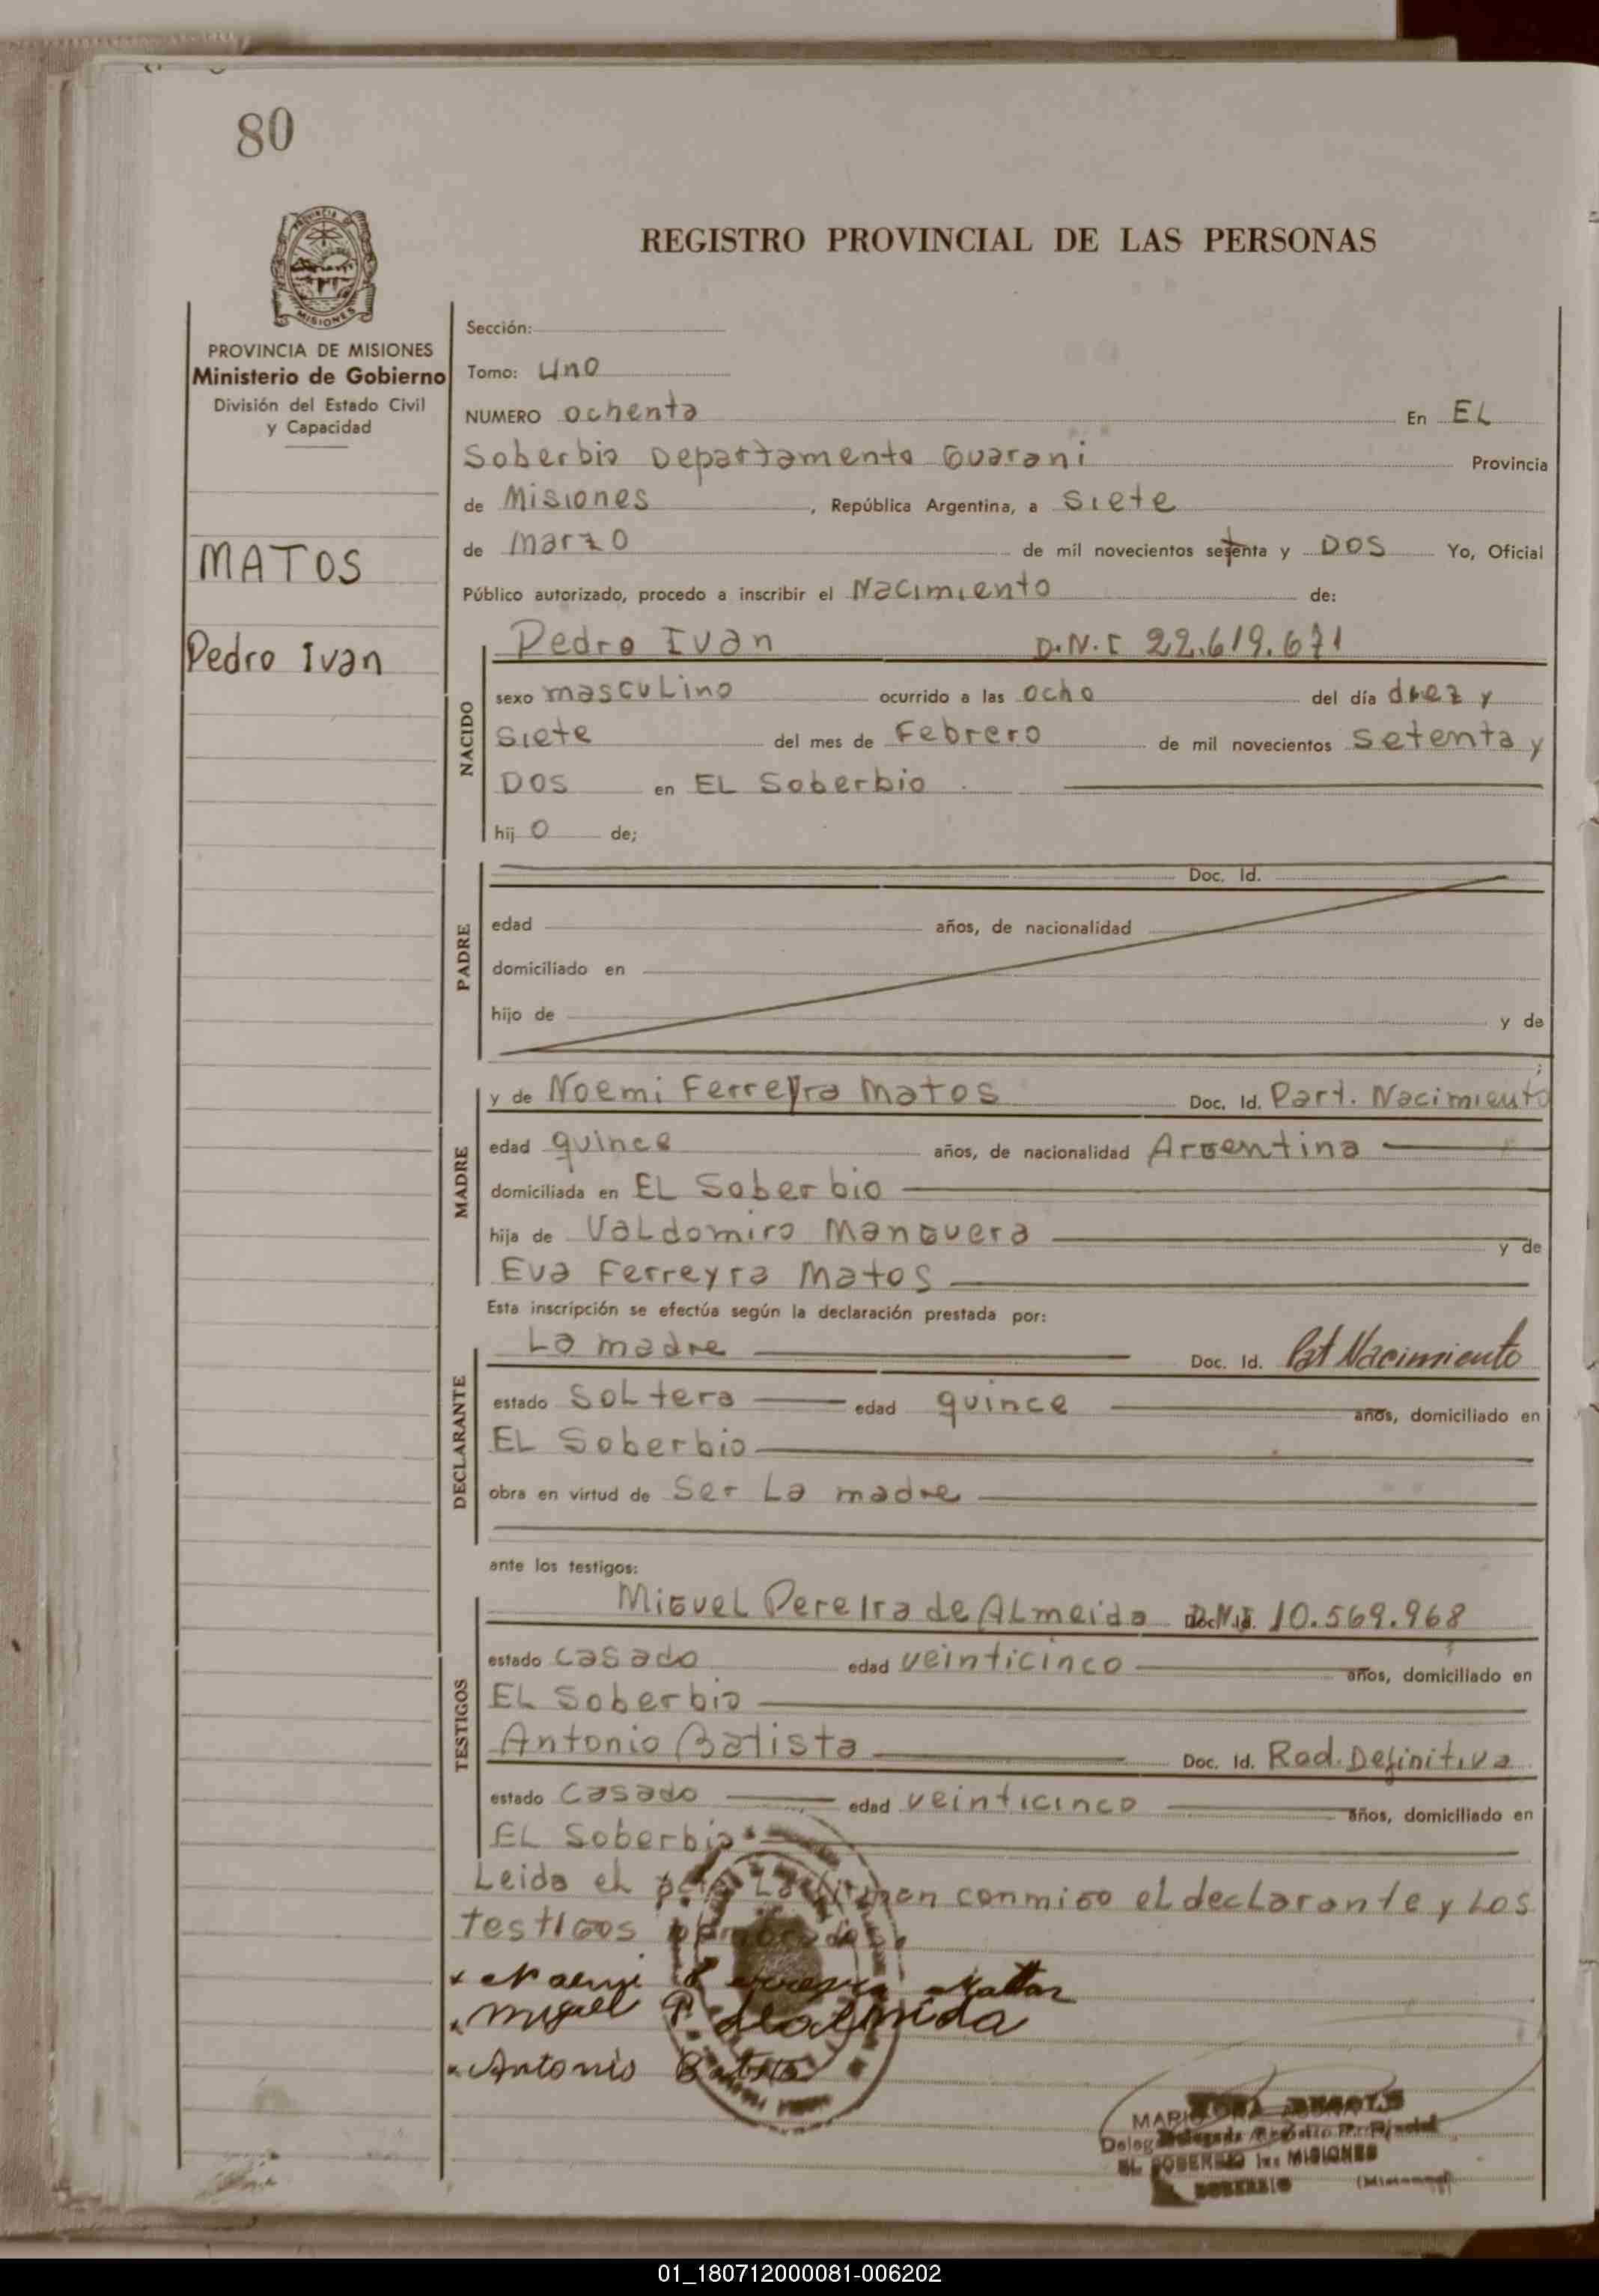 80
PROVINCIA DE MISIONES
MISIONES
PROVINCIA DE MISIONES
Ministerio de Gobierno
División del Estado Civil
y Capacidad
MATOS
Pedro Ivan
REGISTRO PROVINCIAL DE LAS PERSONAS
Sección:
Tomo: Uno
NUMERO ochenta En EL
Soberbio Departamento Guarani Provincia
de Misiones, República Argentina, a siete
de marzo de mil novecientos setenta y DOS Yo, Oficial
Público autorizado, procedo a inscribir el Nacimiento de:
NACIDO
Pedro Ivan D.N.I 22.619.671
sexo masculino ocurrido a las ocho del día diez y
siete del mes de Febrero de mil novecientos setenta y
DOS en EL Soberbio
hijo de;
PADRE
Doc. Id.
edad años, de nacionalidad
domiciliado en
hijo de y de
;
MADRE
y de Noemi Ferreyra Matos Doc. Id. Part. Nacimiento
edad quince años, de nacionalidad Argentina
domiciliada en EL Soberbio
hija de Valdomiro Manguera y de
Eva Ferreyra Matos
Esta inscripción se efectúa según la declaración prestada por:
DECLARANTE
La madre Doc. Id. Pat Nacimiento
estado Soltera edad quince años, domiciliado en
EL Soberbio
obra en virtud de Ser La madre
ante los testigos:
TESTIGOS
Miguel Pereira de Almeida D.N.I. 10.569.968
estado casado edad veinticinco años, domiciliado en
EL Soberbio
Antonio Batista Doc. Id. Rad. Definitiva
estado casado edad veinticinco años, domiciliado en
EL Soberbio
Leida el acta La firman conmigo el declarante y Los
testigos nombrados
x Noemi Ferreyra Mattos
x Miguel P. de almeida
x Antonio Batista
MARIO
EL SOBERBIO MISIONES
SOBERBIO (Misiones)
01_180712000081-006202